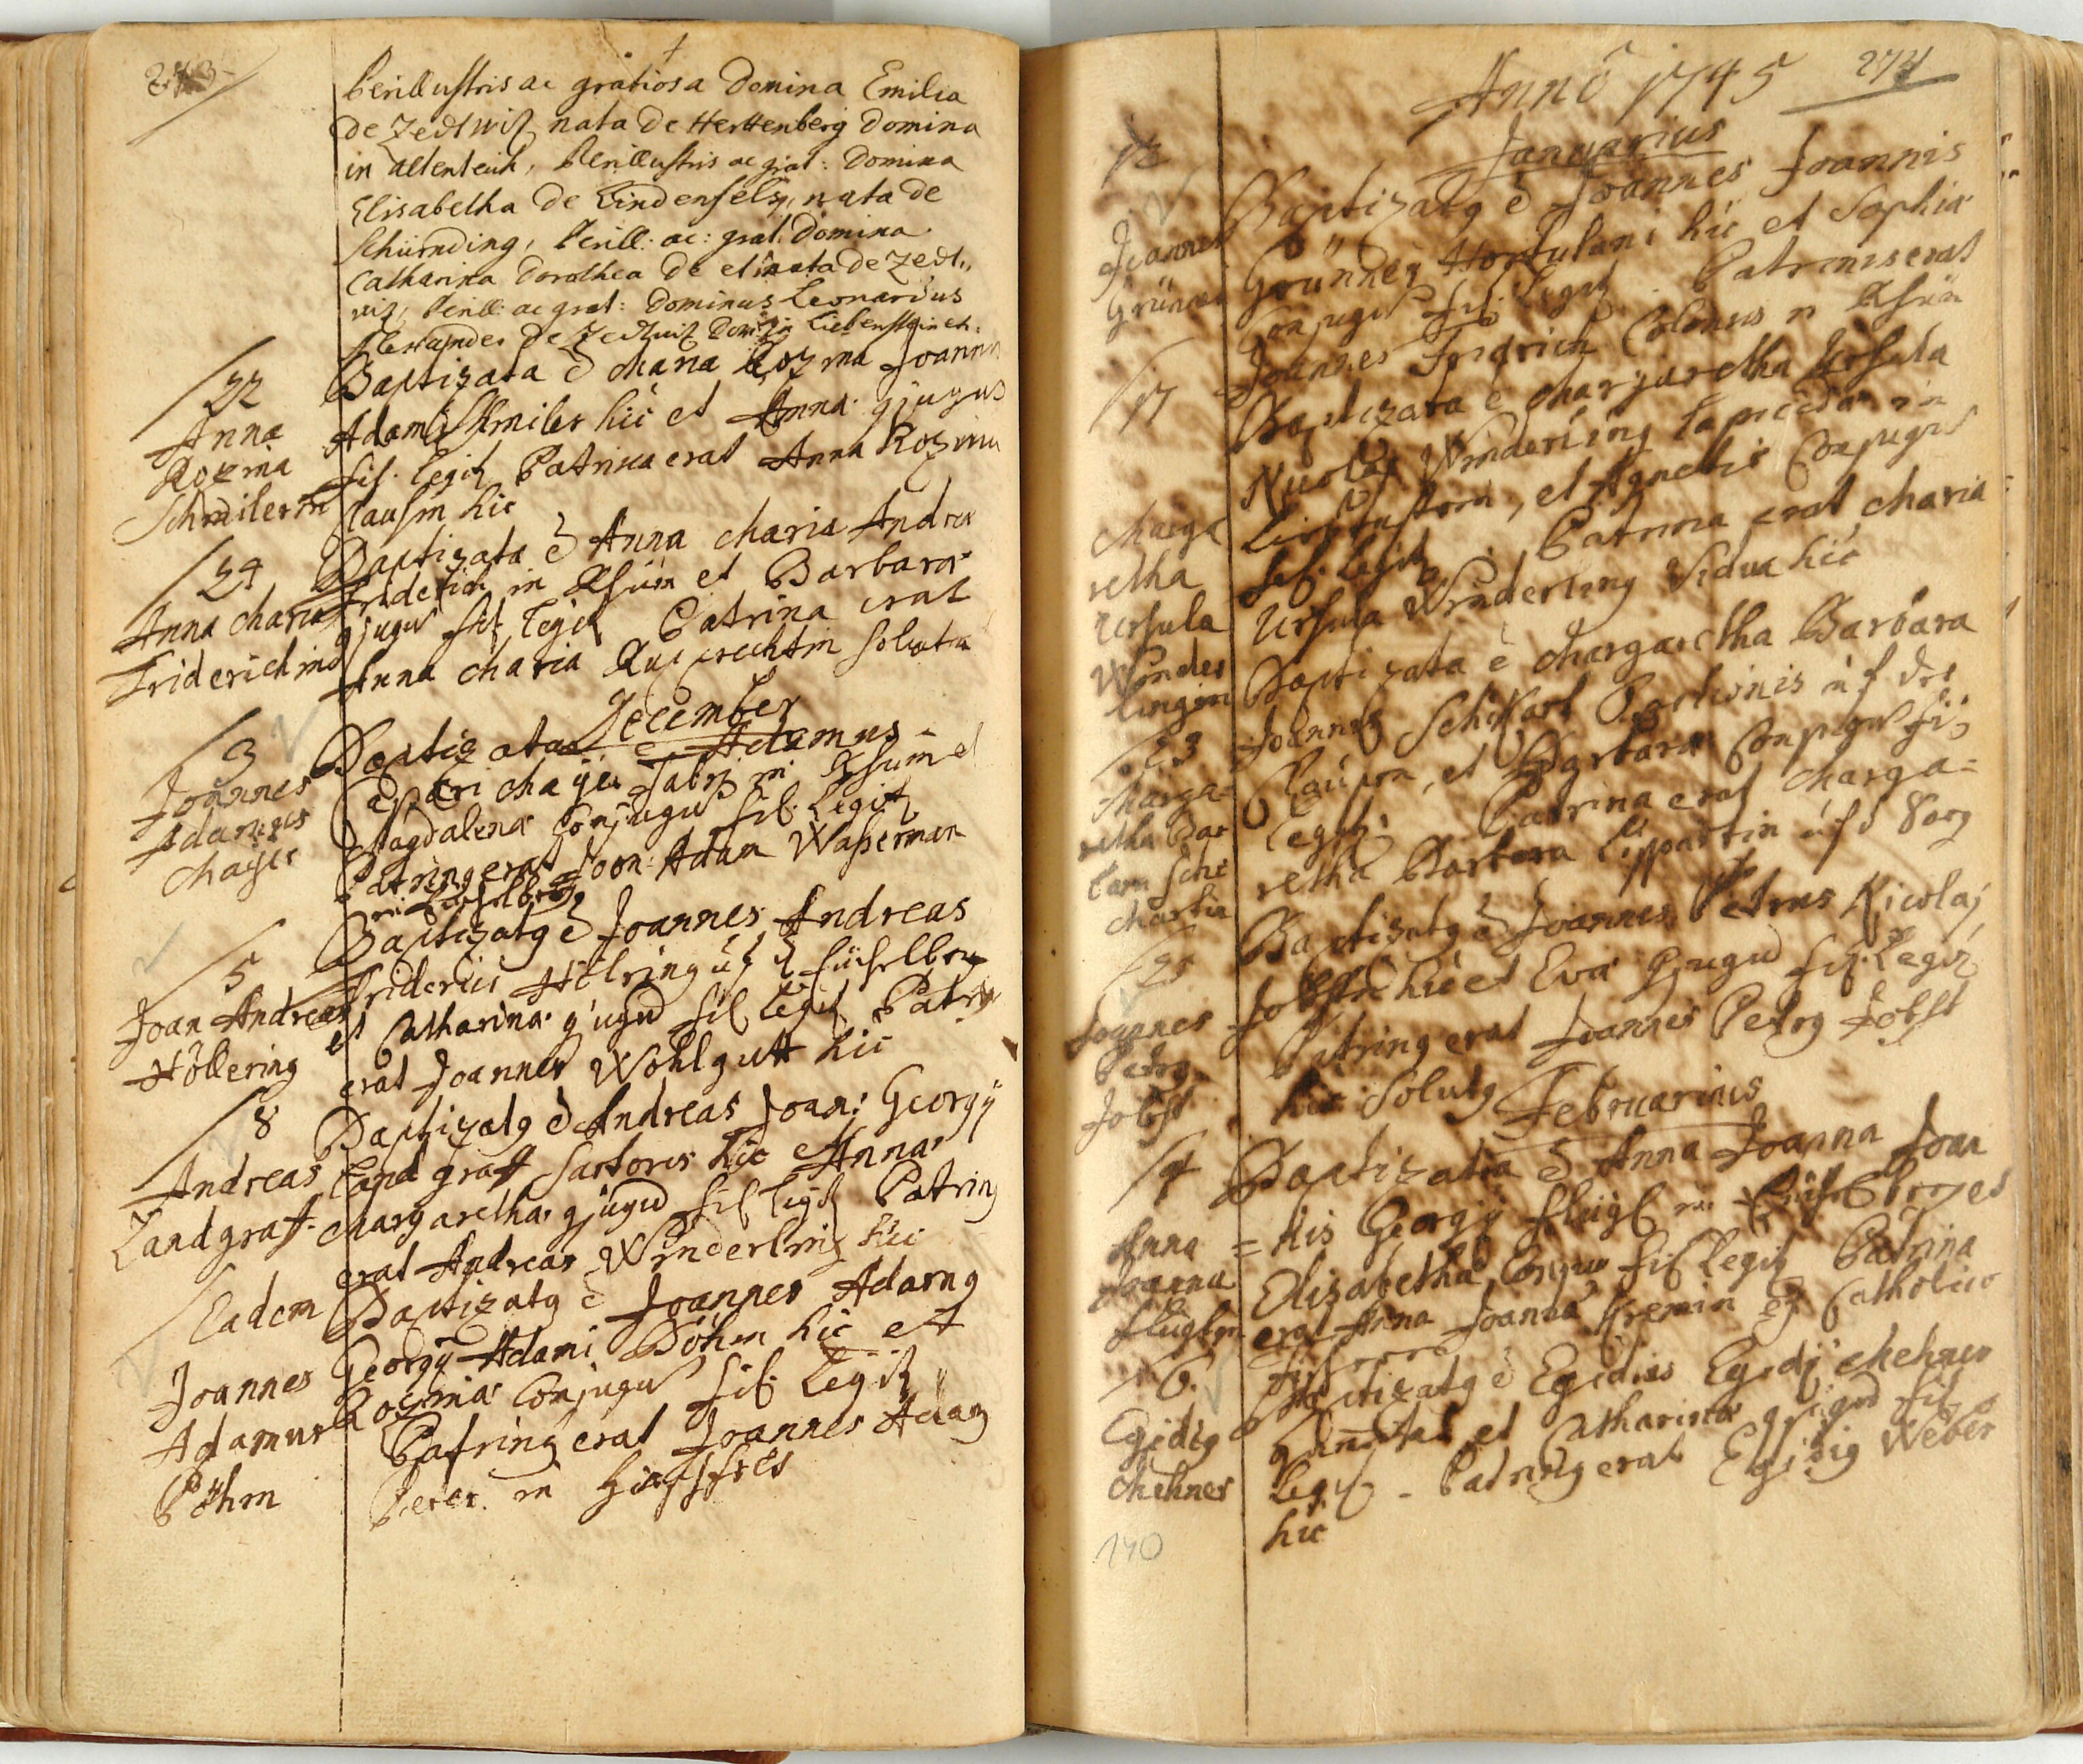 273
Perillustris ac gratiosa Domina Emilia
de Zedtwiz nata de Herttenberg Domina
in altenteich, Perillustris ac grat: Domina
Elisabetha de Lindenfels, nata de
Schürnding, Perill: ac: grat: Domina
Catharina Dorothea de et nata de Zedt„
wiz, Perill: ac grat: Dominus Leonardus
Alexander de Zedtwiz Dom: in Liebenstein etc:
22
Anna
Rozina
Schmilerin
Baptizata ē Maria Rozina Joannis
Adami Schmiler hic et Anna gjugus
fil. legit Patrina erat Anna Rozina
Clausin hic
24
Anna Maria
Friderichin
Baptizata ē Anna Maria Andreæ
Friderich in Ashün et Barbaræ
gjugus fil legit Patrina erat
Anna Maria Rupprechtin soluta
December
3
Joannes
Adamus
Mayer
Baptizatus ē Adamus
Caspari Mayer Fabri in Ashün et
Magdalenæ Conjugus fil. legit
Patring erat Joan: Adam Waßerman
5
Joan Andreas
Höllering
Baptizatg ē Joannes Andreas
Friderici Hölring ufs d
et Catharinæ gjugus fil legit Patring
erat Joannes Wohlgutt hic
8
Andreas
Landgraff
Baptizatg ē Andreas Joan: Georgÿ
Landgraff Sartoris hic Annæ
Margarethæ gjugus fil legit Patring
erat Andreas Winderling hic
Eadem
Joannes
Adamus
Böhm
Baptizatg ē Joannes Adamg
Georgÿ Adami Böhm hic et
Rozinæ Conjugus fil. legit
Patring erat Joannes Adam
Peter in
274
Anno 1745
Januarius
12
Joannes
Grüner
Baptizatg ē Joannes Joannis
Grünner Hortulani hic et Sophiæ
Conjugus fil. legit. Patrinus erat
Joannes Fridrich Colonus in Ashün
17
Marga
retha
Ursula
Winder
lingin
Baptizata ē Margaretha Ursula
Nicolai Winderling lapicidæ in
Liebenstein, et Agnetis Conjugus
fil. legit. Patrina erat Maria
Ursula Winderling Vidua hic
23
Marga-
retha Bar
bara Schi
Baptizata ē Margaretha Barbara
Joannis Schikart in uf der
et Barbaræ Conjugus fil
legit. Patrina erat Marga=
retha Barbara Lippartin uf d Borg
25
Joannes
Petrg
Jobst
Baptizatg ē Joannes Petrus Nicolaj
Jobst hic et Eva gjugus fil. legit
Patring erat Joannes Petrg Jobst
hic solutg
Februarius
4
Anna
Joanna
Flüglin
Baptizata ē Anna Joanna Joan
=nis Georgÿ Flügl in et
Elisabethæ Conjus fil legit Patrina
erat Anna Joanna Kremin ex Catholico
6.
Egidig
Mehner
Baptizatg ē Egidius Egidj Mehner
et Catharinæ gjugus fil
legit - Patring erat Egidig Weber
hic
140